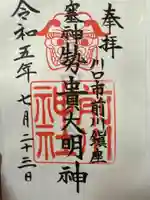 奉拝
川口市前川鎮座
塞神 勢貴大明神
令和五年七月二十三日